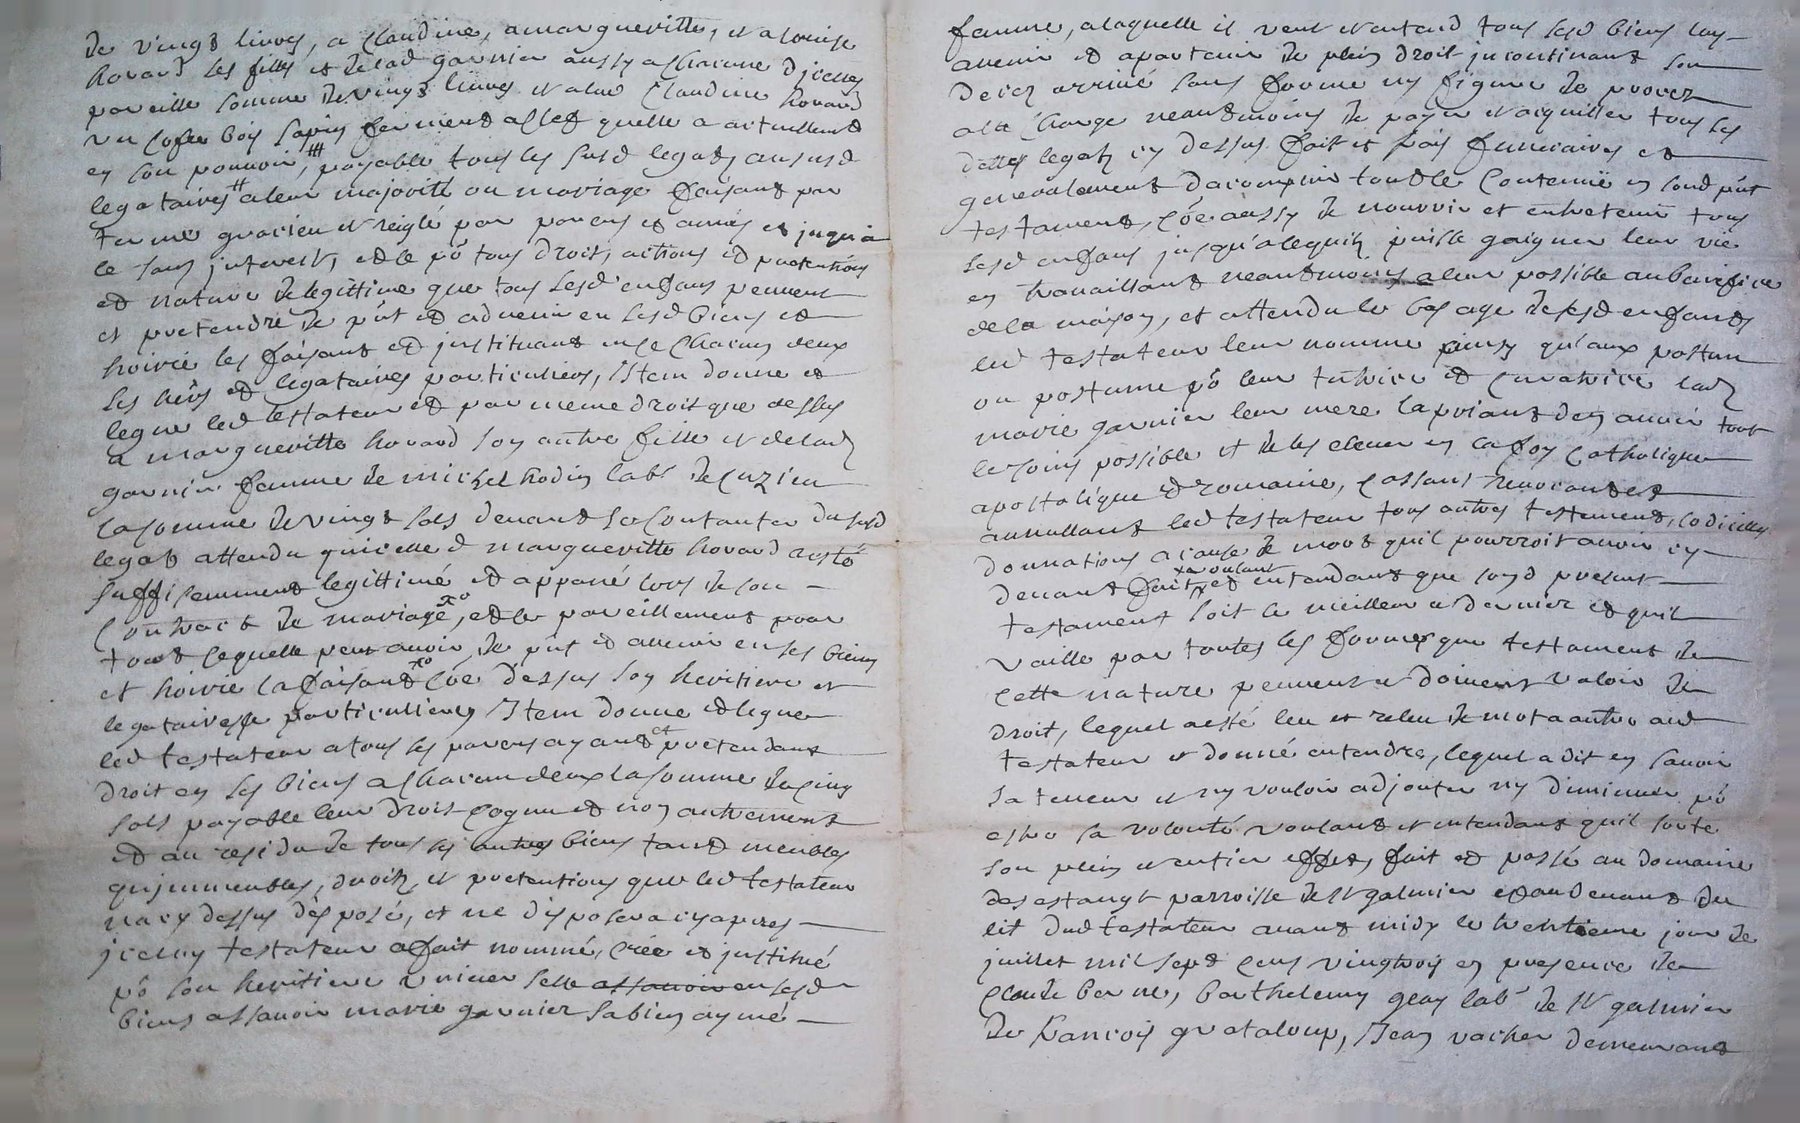 de vingt livres, a Claudine, a margueritte, et a louise
hovard ses filles et de lad garnier aussy a chacune d'jcelles
pareille somme de vingt livres et a lad Claudine hovard
un cofre bois sapin fermant a clef quelle a actuellemt
en son pouvoir, payable tous les susd legats aususd
legataires a leur majorité ou mariage faisant par
terme gracieux et reiglé par parens et amis et jusqu'a
ce sans jnterest, et ce pō tous droit, actions et pretentions
et nature de legittime que tous sesd enfans peuvent
et pretendre de pñt et advenir en sesd biens et
hoirie les faisant et jnstituant en ce chacun deux
ses hērs et legataires particuliers, Jtem donne et
legue led testateur et par meme droit que dessus
a margueritte hovard son autre fille et de lad
garnier femme de michel rodin labr de Cuzieu
la somme de vingt sols devant se contanter du susd
legat attendu quicelle d margueritte hovard a esté
suffisemment legittimé et appané lors de son
Contract de mariage, et ce pareillement pour
tout ce quelle peut avoir de pñt et avenir en ses biens
et hoirie la faisant cōe dessus son heritiere et
legataire particuliere, Jtem donne et legue
led testateur a tous ses parens ayant et pretendant
droit en ses biens a chacun deux la somme de cinq
sols payable leur droit cognu et non autrement
et au residu de tous ses autres biens tant meubles
qu'jmmeubles, droits, et pretentions que led testateur
na cy dessus disposé, et ne disposera cy apres
jceluy testateur a fait nommé, créé et jnstitué
pō son heritiere universelle assavoir en sesd
biens assavoir marie garnier sa bien aymé
femme, a laquelle il veut et entend tous sesd biens luy
avenir et apartenir de plein droit jncontinant son
decez arrivé sans forme ny figure de procez
a la charge neantmoins de payer et aquitter tous ses
dettes legatz cy dessus fait et frais funeraires et
generalement dacomplir tout le Contenuë en sond pñt
testament, cōe aussy de nourrir et entretenir tous
sesd enfans jusqu'a ce quilz puisse gaigner leur vie
en travaillant neantmoins a leur possible au benefice
de la maison, et attendu le bas age de sesd enfants
led testateur leur nomme ainsy qu'aux postume
ou postume pō leur tutrice et Curatrice lad
marie garnier leur mere la priant den avoir tout
le soins possible et de les elever en la foy catholique
apostolique et romaine, cassant revocant et
annullant led testateur tous autres testament, codicilles
donnations a cause de mort quil pourroit avoir cy
devant fait, voulant et entendant que sond present
testament soit le meilleur et dernier et quil
vaille par toutes les formes que testament de
cette nature peuvent et doivent valoir de
droit, lequel a esté leu et releu de mot a autre aud
testateur et donné entendre, lequel a dit en savoir
sa teneur et ny vouloir adjouter ny diminuer pō
estre sa volonté voulant et entendant quil sorte
son plein et entier effet, fait et passé au domaine
des estangt parroisse de St galmier et au devant du
lit dud testateur avant midy le trentieme jour de
juillet mil sept cent vingt trois en presence de
Claude berne, barthelemy gray labr de St galmier
de francois grataloup, Jean vacher demeurant